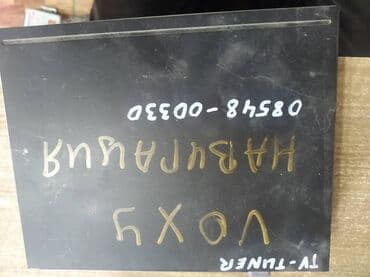 TV-TUNER
VOXY
НАВИГАЦИЯ
08548-00330